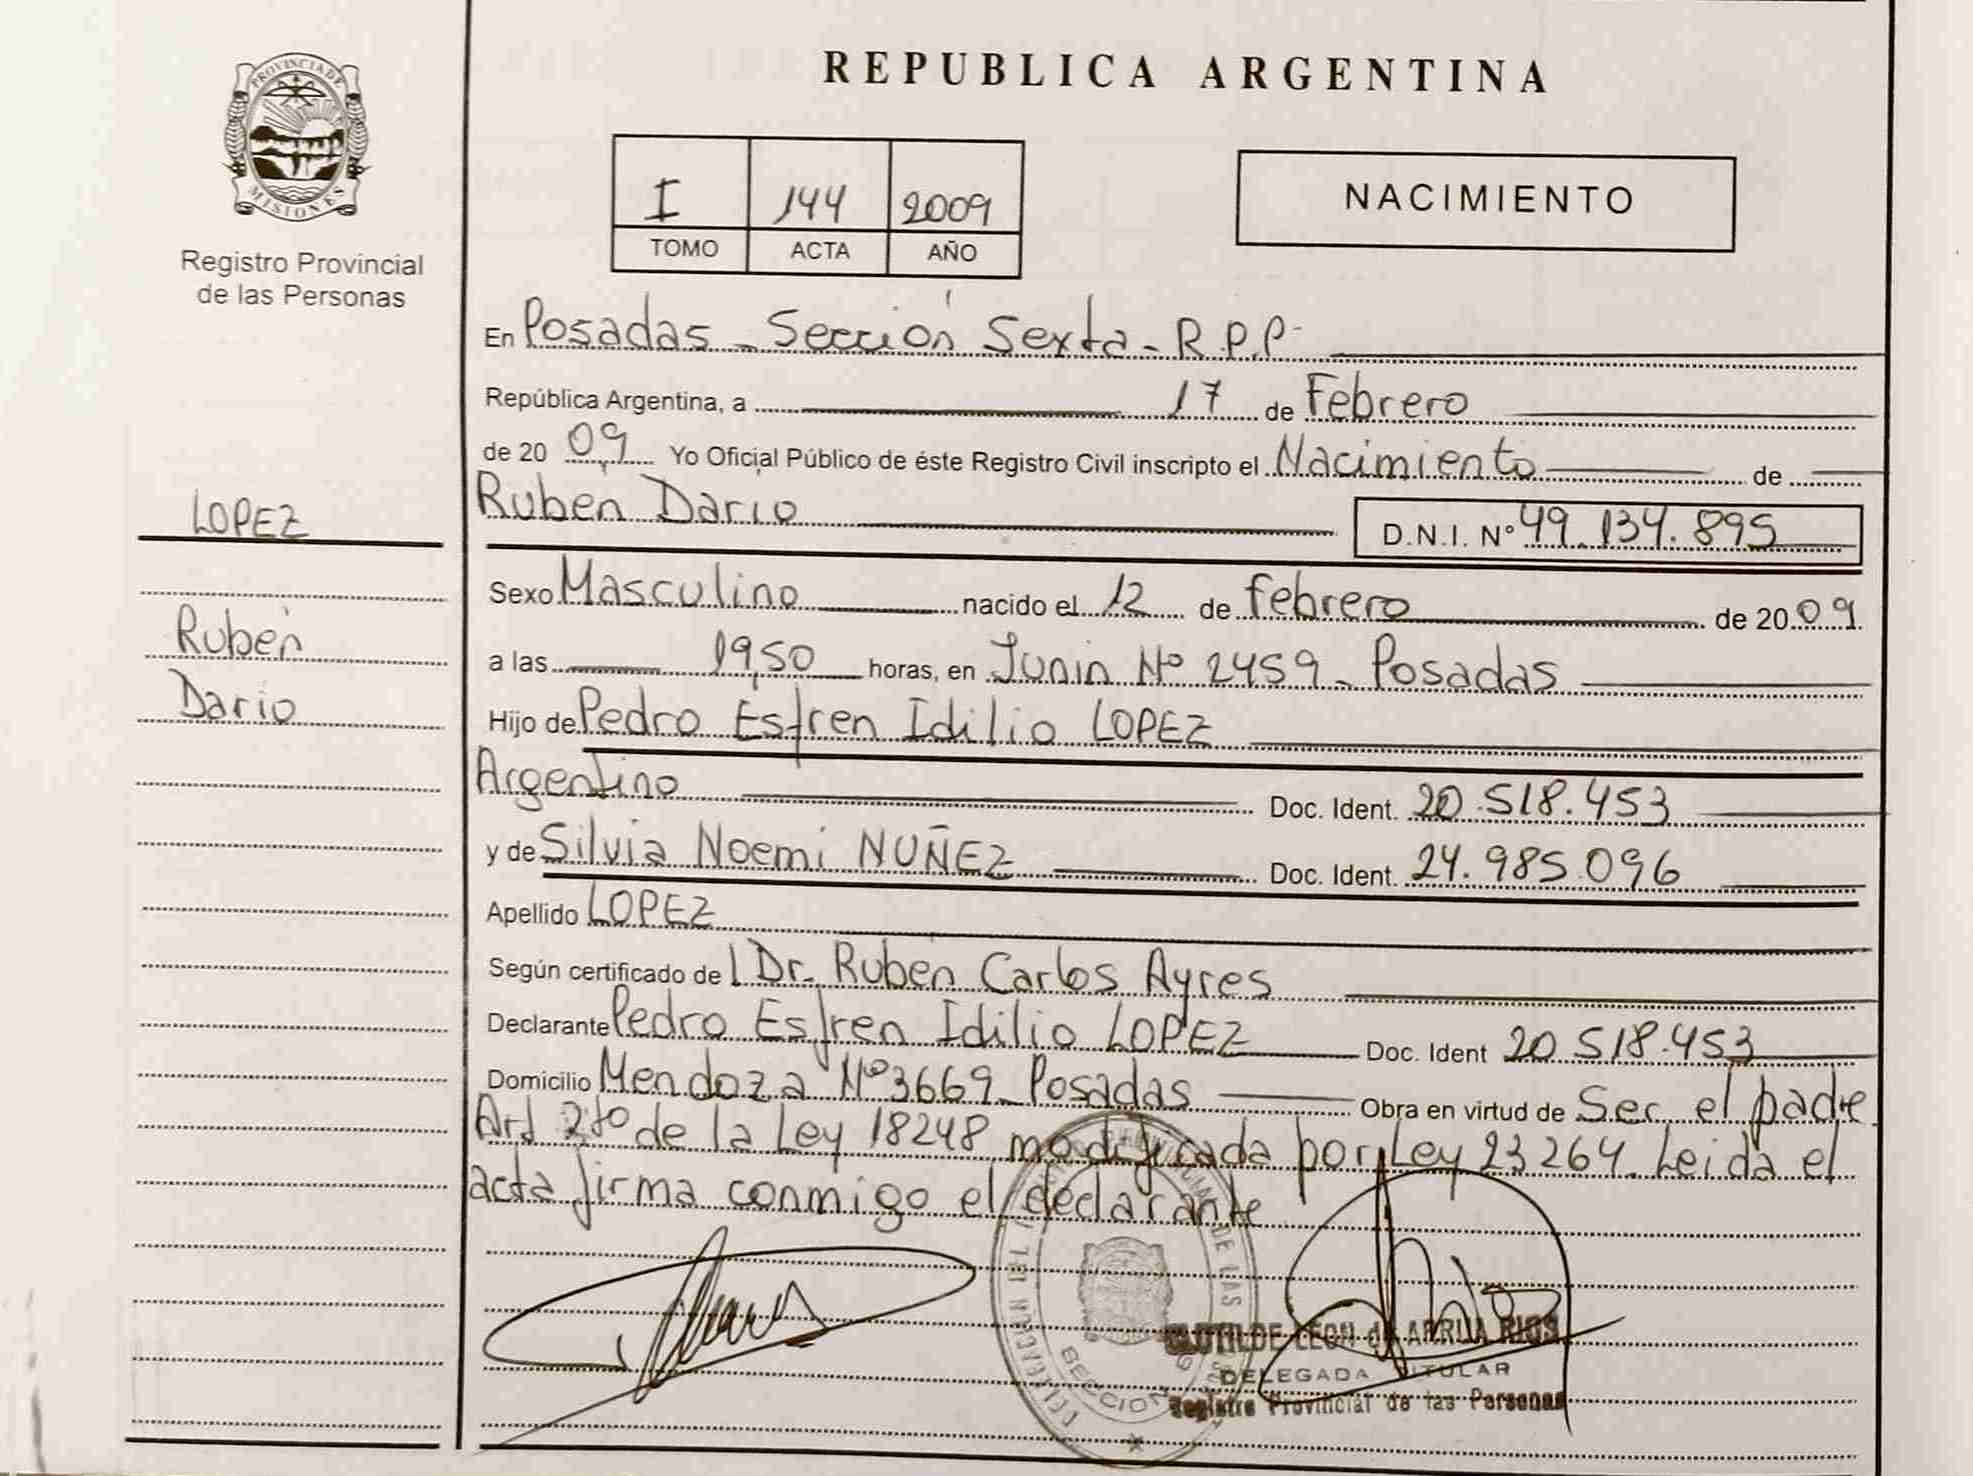 PROVINCIA DE
MISIONES
Registro Provincial
de las Personas
LOPEZ
Rubén
Dario
REPUBLICA ARGENTINA
I 144 2009
TOMO ACTA AÑO
NACIMIENTO
En Posadas - Sección Sexta - R.P.P.
República Argentina, a 17 de Febrero
de 20 09 Yo Oficial Público de éste Registro Civil inscripto el Nacimiento de
Ruben Dario D.N.I. Nº 49.134.895
Sexo Masculino nacido el 12 de febrero de 20 09
a las 19,50 horas, en Junin Nº 2459 - Posadas
Hijo de Pedro Esfren Idilio LOPEZ
Argentino Doc. Ident. 20.518.453
y de Silvia Noemi NUÑEZ Doc. Ident. 24.985.096
Apellido LOPEZ
Según certificado de l Dr. Ruben Carlos Ayres
Declarante Pedro Esfren Idilio LOPEZ Doc. Ident 20.518.453
Domicilio Mendoza Nº 3669 - Posadas Obra en virtud de Ser el padre
Art 2do de la Ley 18248 modificada por Ley 23264. Leida el
acta firma conmigo el declarante
CLOTILDE LEON de ARRUA RIOS
DELEGADA TITULAR
Registro Provincial de las Personas
DE LAS
SECCION